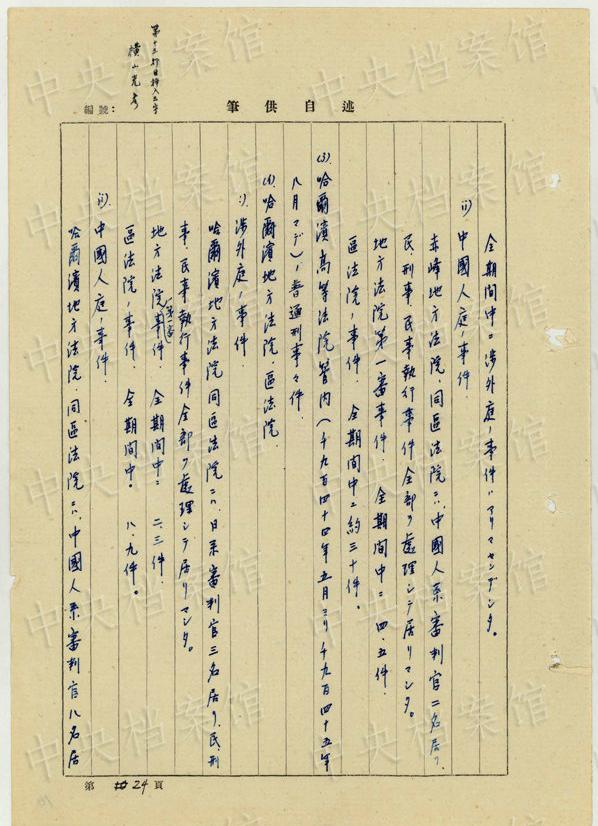 述自供筆
編號:
第十三行目挿入三字
横山光彦
全期間中ニ渉外庭ノ事件ハアリマセンデシタ。
ii). 中國人庭ノ事件.
赤峰地方法院.同區法院ニハ、中國人系審判官二名居リ
民.刑事.民事執行事件全部ヲ處理シテ居リマシタ。
地方法院第一審事件. 全期間中ニ 四.五件.
區法院ノ事件. 全期間中ニ約三十件。
(3). 哈爾濱高等法院管内(千九百四十四年五月ヨリ千九百四十五年
八月マデ)ノ普通刑事々件.
(イ). 哈爾濱地方法院.區法院.
i). 渉外庭ノ事件.
哈爾濱地方法院.同區法院ニハ、日系審判官三名居リ、民.刑
事.民事執行事件全部ヲ處理シテ居リマシタ。
地方法院(第一審)事件. 全期間中ニ 二.三件.
區法院ノ事件. 全期間中。 八.九件。
ii). 中國人庭ノ事件.
哈爾濱地方法院.同區法院ニハ、中國人系審判官八名居
第 24 頁
中央档案馆